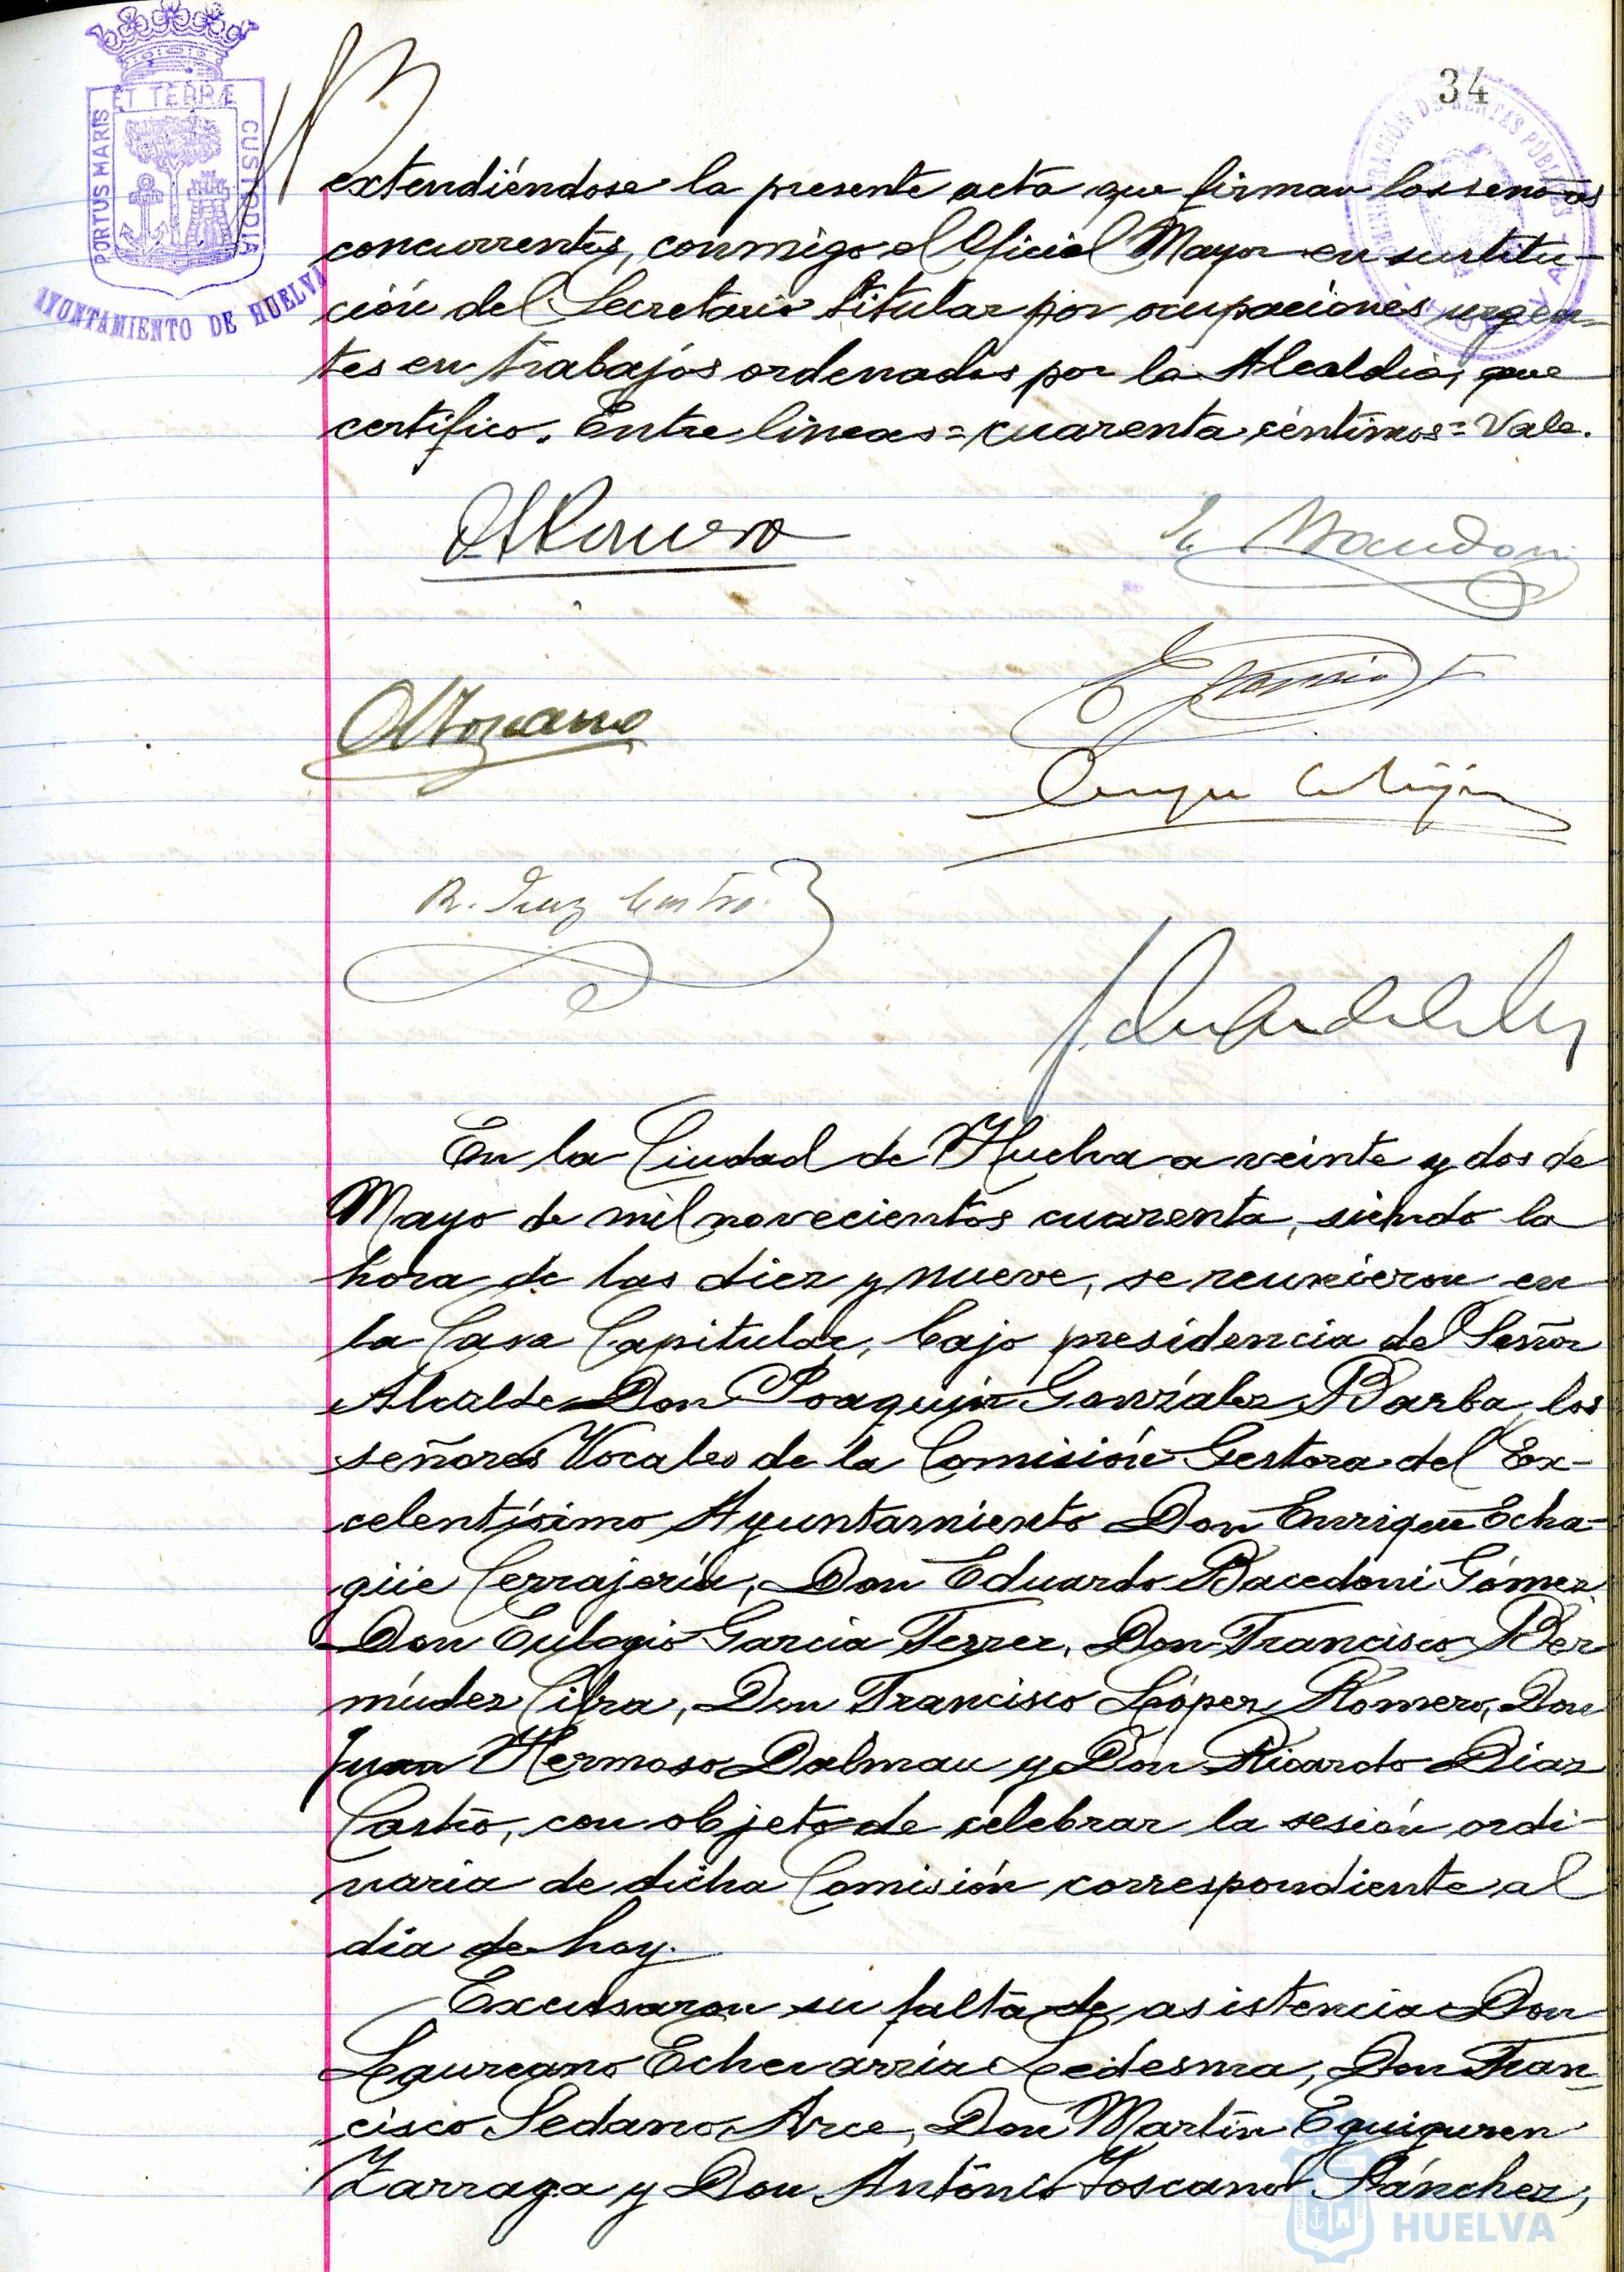 34
ET TERRÆ
PORTUS MARIS
CUSTODIA
AYUNTAMIENTO DE HUELVA
extendiéndose la presente acta que firman los señores
concurrentes, conmigo el Oficial Mayor en sustitu-
ción del Secretario titular por ocupaciones urgen-
tes en trabajos ordenados por la Alcaldía, que
certifico. Entre lineas = cuarenta céntimos = Vale.
R. Diaz Castro
En la Ciudad de Huelva a veinte y dos de
Mayo de mil novecientos cuarenta, siendo la
hora de las diez y nueve, se reunieron en
la Casa Capitular, bajo presidencia del Señor
Alcalde Don Joaquín González Barba, los
señores Vocales de la Comisión Gestora del Ex-
celentísimo Ayuntamiento Don Enrique Echa-
güe Cerrajería, Don Eduardo Bacedoni Gómez,
Don Eulogio García Ferrer, Don Francisco Ber
múdez Cifra, Don Francisco López Romero, Don
Juan Hermoso Dalmau y Don Ricardo Diaz
Castro, con objeto de celebrar la sesión ordi-
naria de dicha Comisión correspondiente al
dia de hoy.
Excusaron su falta de asistencia Don
Laureano Echevarría Ledesma, Don Fran-
cisco Sedano Arce, Don Martín Eguiguren
Zarraga y Don Antonio Toscano Sánchez,
HUELVA